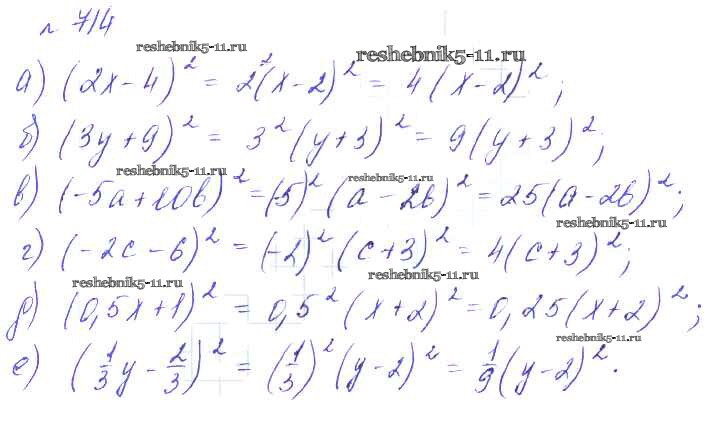 № 714
reshebnik5-11.ru
reshebnik5-11.ru
а) (2x-4)² = 2²(x-2)² = 4(x-2)²;
б) (3y+9)² = 3²(y+3)² = 9(y+3)²;
reshebnik5-11.ru
reshebnik5-11.ru
в) (-5a+10b)² = (-5)²(a-2b)² = 25(a-2b)²;
reshebnik5-11.ru
г) (-2c-6)² = (-2)²(c+3)² = 4(c+3)²;
reshebnik5-11.ru
reshebnik5-11.ru
д) (0,5x+1)² = 0,5²(x+2)² = 0,25(x+2)²;
reshebnik5-11.ru
е) (1/3y - 2/3)² = (1/3)²(y-2)² = 1/9(y-2)².